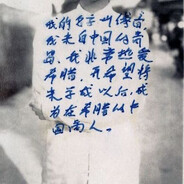 我的名字叫傅高
我来自中国的青
岛，我非常热爱
希腊，并希望将
来学成以后，成
为在希腊以中
国商人。